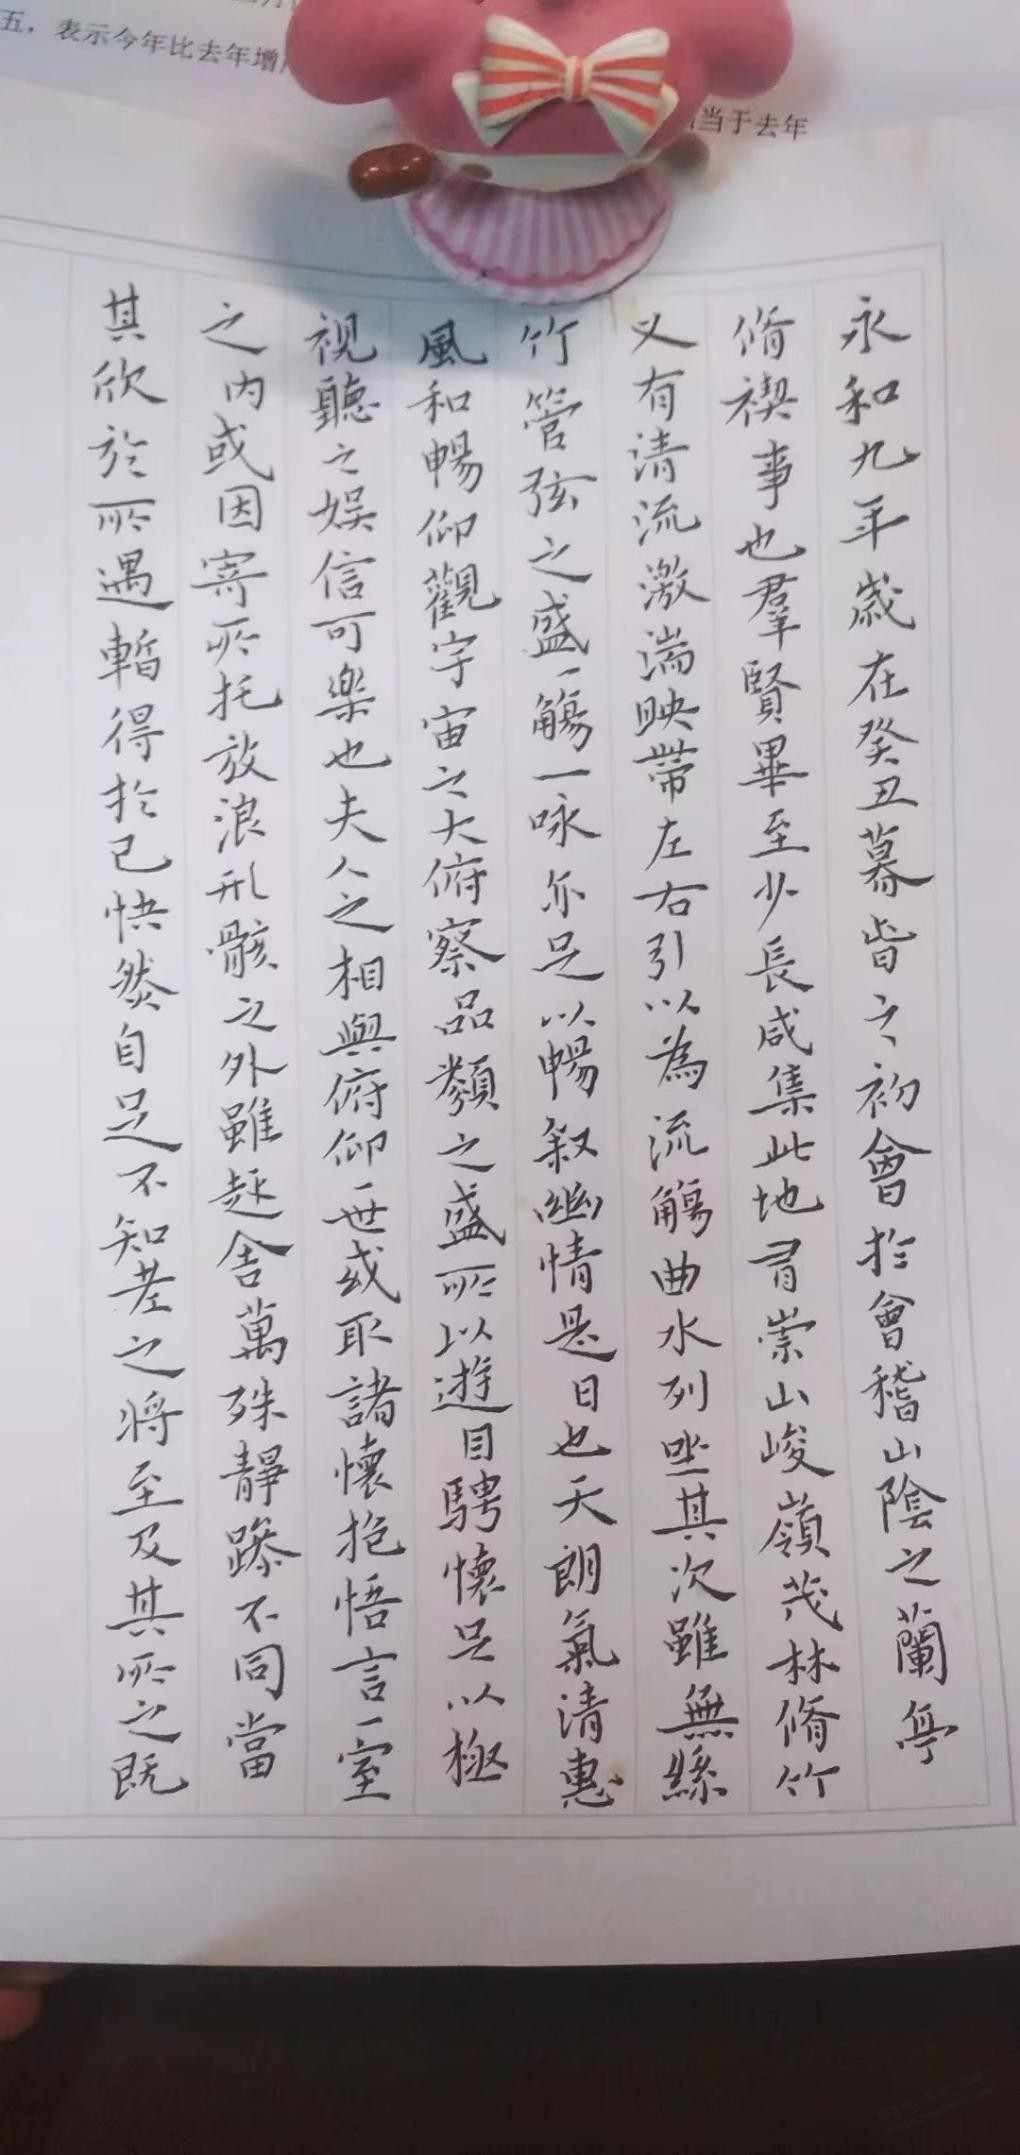 五，表示今年比去年增
当于去年
永和九年歲在癸丑暮旾之初會於會稽山陰之蘭亭
脩禊事也羣賢畢至少長咸集此地有崇山峻嶺茂林脩竹
又有清流激湍映帶左右引以為流觴曲水列坐其次雖無絲
竹管弦之盛一觴一咏亦足以暢叙幽情是日也天朗氣清惠
風和暢仰觀宇宙之大俯察品類之盛所以遊目騁懷足以極
視聽之娛信可樂也夫人之相與俯仰一世或取諸懷抱悟言一室
之內或因寄所托放浪形骸之外雖趣舍萬殊靜躁不同當
其欣於所遇暫得於己怏然自足不知老之將至及其所之既